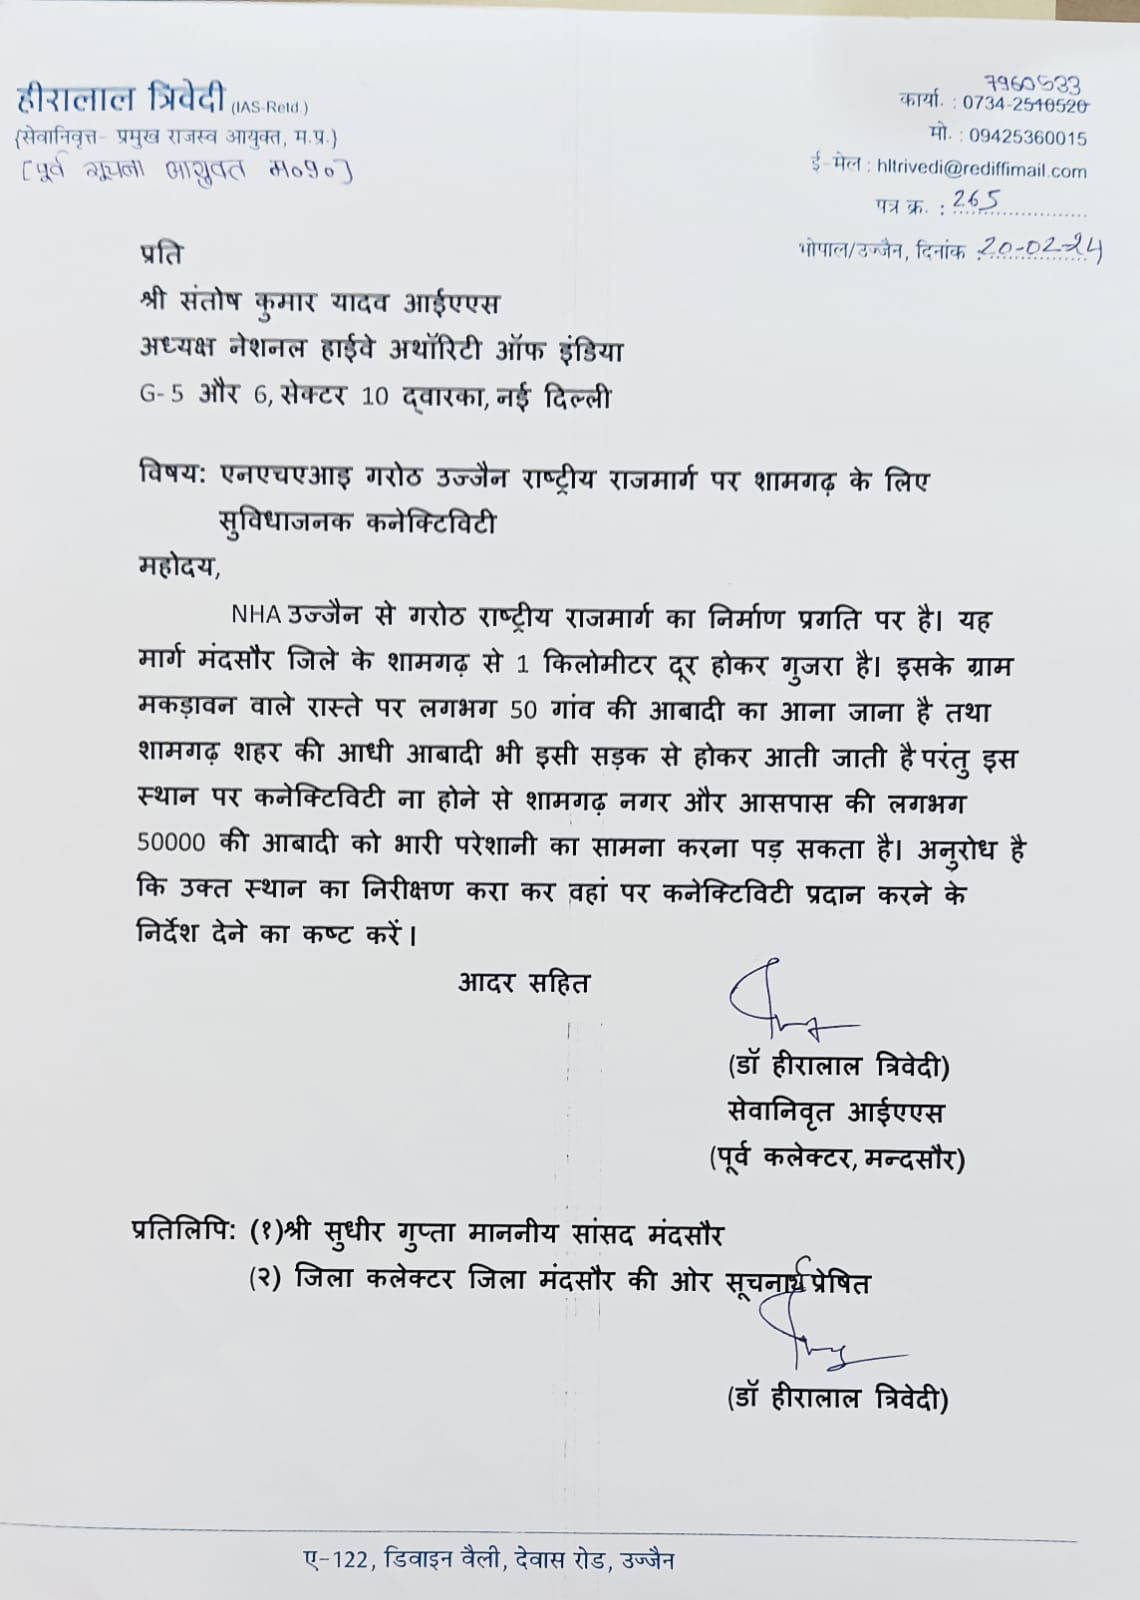 हीरालाल त्रिवेदी (IAS-Retd.)
{सेवानिवृत्त- प्रमुख राजस्व आयुक्त, म.प्र.}
[पूर्व सूचना आयुक्त म०प्र०]
7960533
कार्या. : 0734-2510520
मो. : 09425360015
ई-मेल : hltrivedi@rediffimail.com
पत्र क्र. : 265
भोपाल/उज्जैन, दिनांक : 20-02-24
प्रति
श्री संतोष कुमार यादव आईएएस
अध्यक्ष नेशनल हाईवे अथॉरिटी ऑफ इंडिया
G- 5 और 6, सेक्टर 10 द्वारका, नई दिल्ली
विषय: एनएचएआइ गरोठ उज्जैन राष्ट्रीय राजमार्ग पर शामगढ़ के लिए
सुविधाजनक कनेक्टिविटी
महोदय,
NHA उज्जैन से गरोठ राष्ट्रीय राजमार्ग का निर्माण प्रगति पर है। यह
मार्ग मंदसौर जिले के शामगढ़ से 1 किलोमीटर दूर होकर गुजरा है। इसके ग्राम
मकड़ावन वाले रास्ते पर लगभग 50 गांव की आबादी का आना जाना है तथा
शामगढ़ शहर की आधी आबादी भी इसी सड़क से होकर आती जाती है परंतु इस
स्थान पर कनेक्टिविटी ना होने से शामगढ़ नगर और आसपास की लगभग
50000 की आबादी को भारी परेशानी का सामना करना पड़ सकता है। अनुरोध है
कि उक्त स्थान का निरीक्षण करा कर वहां पर कनेक्टिविटी प्रदान करने के
निर्देश देने का कष्ट करें।
आदर सहित
(डॉ हीरालाल त्रिवेदी)
सेवानिवृत आईएएस
(पूर्व कलेक्टर, मन्दसौर)
प्रतिलिपि: (१)श्री सुधीर गुप्ता माननीय सांसद मंदसौर
(२) जिला कलेक्टर जिला मंदसौर की ओर सूचनार्थ प्रेषित
(डॉ हीरालाल त्रिवेदी)
ए-122, डिवाइन वैली, देवास रोड, उज्जैन